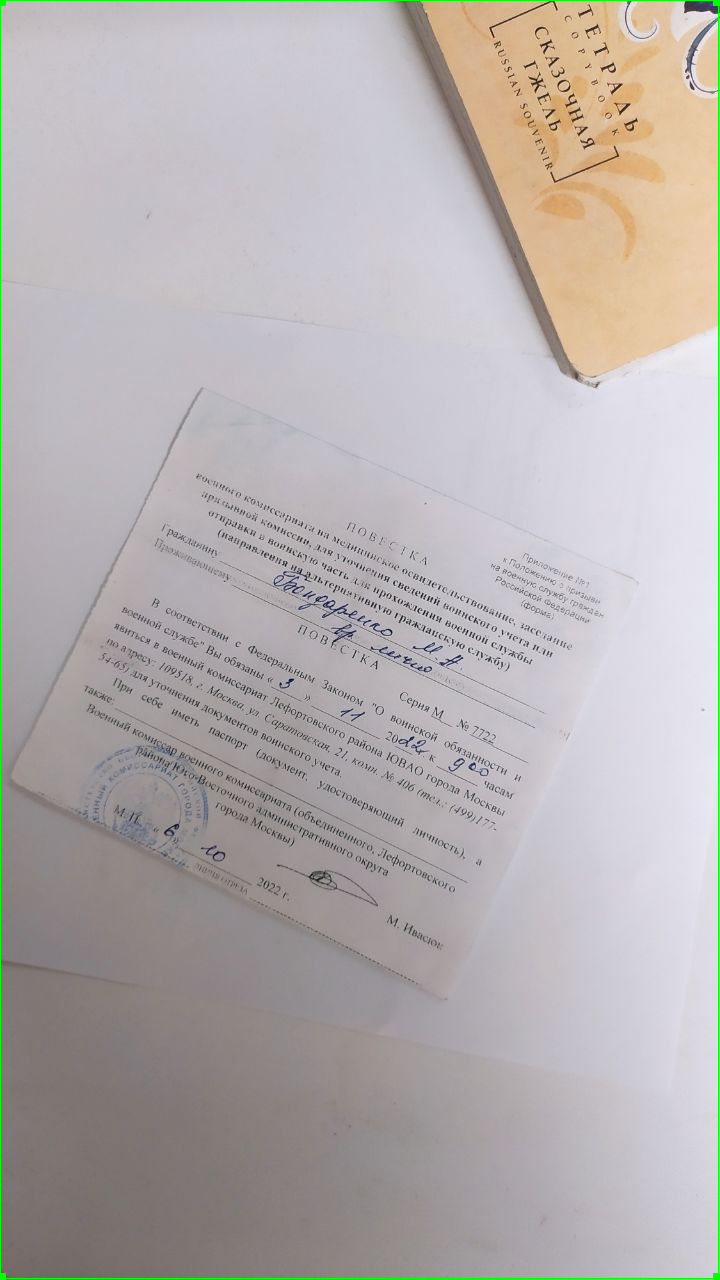 ТЕТРАДЬ
COPYBOOK
СКАЗОЧНАЯ
ГЖЕЛЬ
RUSSIAN SOUVENIR
Приложение №1
к Положению о призыве
на военную службу граждан
Российской Федерации
(форма)
ПОВЕСТКА
военного комиссариата на медицинское освидетельствование, заседание
призывной комиссии, для уточнения сведений воинского учета или
отправки в воинскую часть для прохождения военной службы
(направления на альтернативную гражданскую службу)
Гражданину Бондаренко М.А.
Проживающему вр. лично
ПОВЕСТКА
Серия М № 7722
В соответствии с Федеральным Законом "О воинской обязанности и
военной службе" Вы обязаны « 3 » 11 2022г. к 900 часам
явиться в военный комиссариат Лефортовского района ЮВАО города Москвы
по адресу: 109518, г. Москва, ул. Саратовская, 21, комн. № 406 (тел.: (499)177-
54-65) для уточнения документов воинского учета.
При себе иметь паспорт (документ, удостоверяющий личность), а
также:
Военный комиссар военного комиссариата (объединенного, Лефортовского
района Юго-Восточного административного округа
города Москвы)
М. Ивасюк
М.П. « 6 » 10 2022 г.
ЛИНИЯ ОТРЕЗА